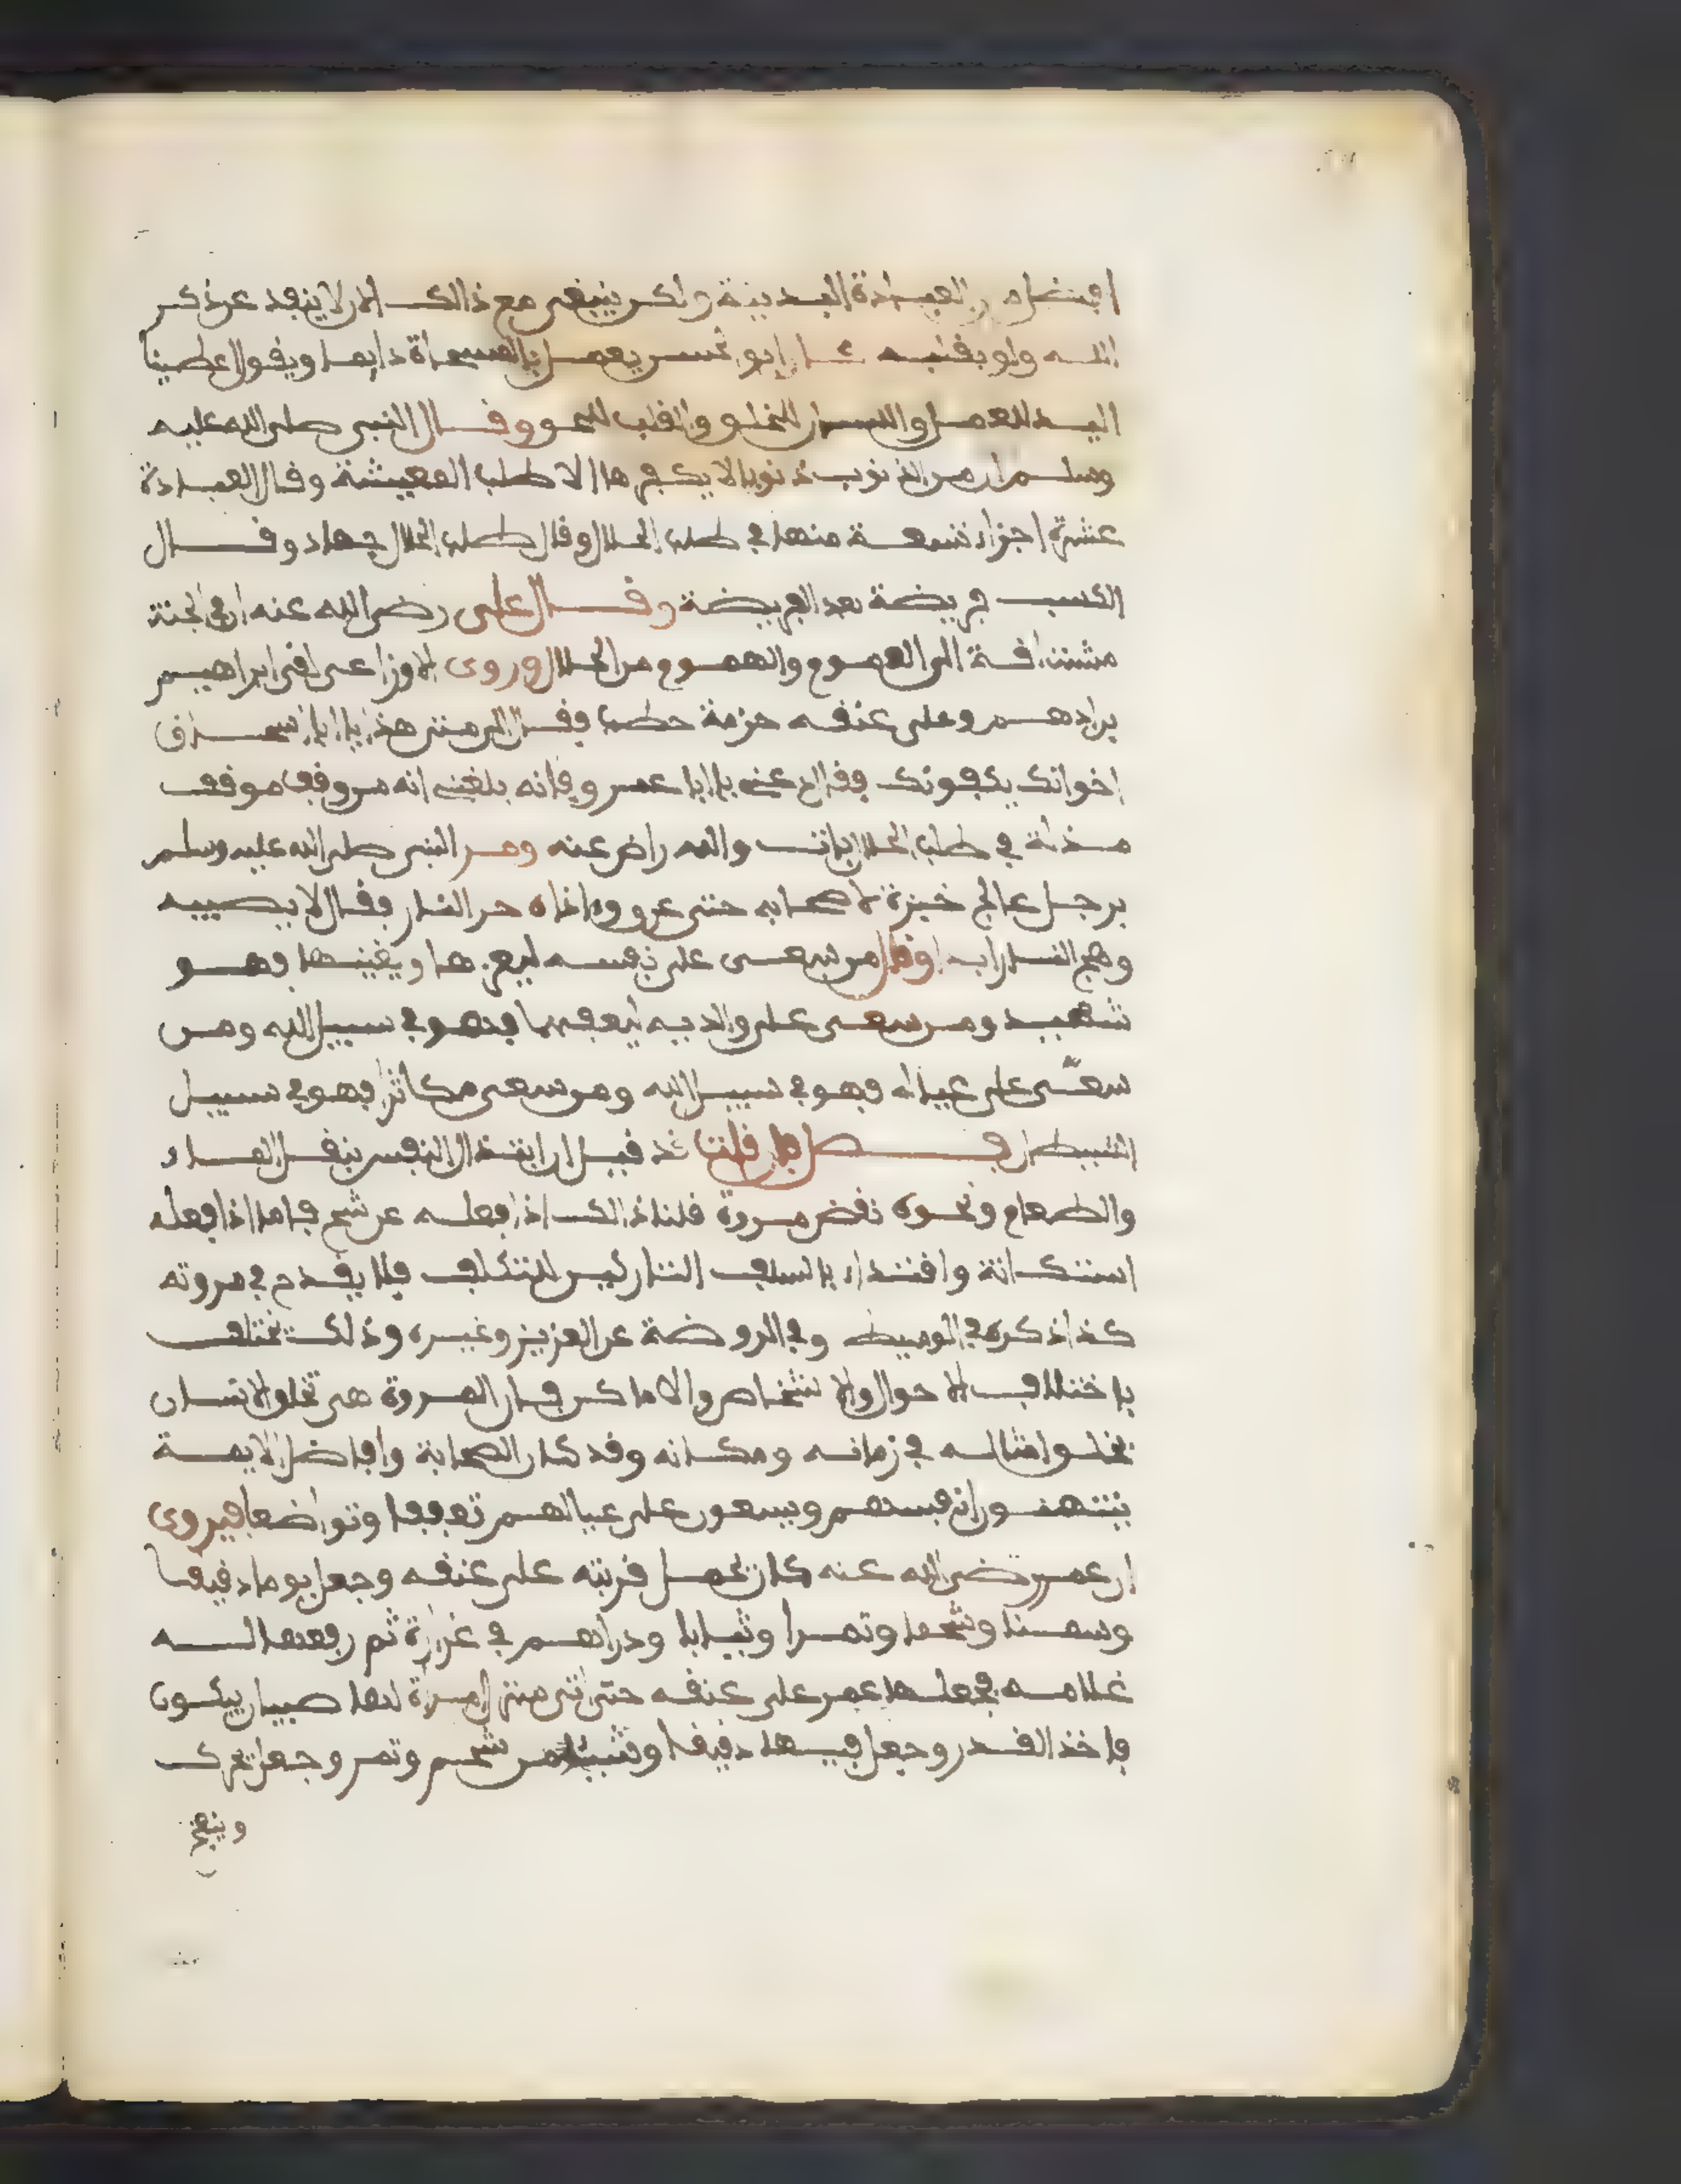 افضل من العبادة البدنية ولكن ينبغي مع ذالك الان لا ينفد عن ذكر
الله ولو بقلبه يعمل بالمسحاة دايما ويقول اعطينا
اليد للعمل واللسان للخلق والقلب للحق وقال النبي صلى الله عليه
وسلم ان من الذنوب ذنوبا لا يكفرها الا طلب المعيشة وقال العبادة
عشرة اجزاء تسعة منها في طلب الحلال وقال طلب الحلال جهاد وقال
الكسب فريضة بعد الفريضة وقال علي رضي الله عنه ان في الجنة
مشتاقة الى الهموم من الحلال وروي الاوزاعي لقي ابراهيم
بن ادهم وعلى عنقه حزمة حطب فقال الى متى هذا يا ابا اسحاق
اخوانك يكفونك فقال دعني يا ابا عمرو فانه بلغني انه من وقف موقف
مذلة في طلب الحلال بات والله راض عنه ومر النبي صلى الله عليه وسلم
برجل عالج خبزة لاصحابه حتى عرق واذاه حر النار فقال لا يصيبه
وهج النار ابدا وقال من سعى على نفسه ليعزها ويغنيها فهو
شهيد ومن سعى على والديه ليعفهما فهو في سبيل الله ومن
سعى على عياله فهو في سبيل الله ومن سعى مكاثرا فهو في سبيل
الشيطان فصل فان قلت قد قيل ان ابتذال النفس بنقل الماء
والطعام ونحوه نقض مروة قلنا ذالك اذا فعله عن شح فاما اذا فعله
استكانة واقتداء بالسلف التاركين للتكلف فلا يقدح في مروته
كذا ذكره في الوسيط وفي الروضة عن العزيز وغيره وذلك يختلف
باختلاف الاحوال والاشخاص والاماكن فان المروة هي تخلق الانسان
بخلق امثاله في زمانه ومكانه وقد كان الصحابة وافاضل الايمة
يمتهنون انفسهم ويسعون على عيالهم تعففا وتواضعا فيروى
ان عمر رضي الله عنه كان يحمل قربته على عنقه وجعل يوما دقيقا
وسمنا وشحما وتمرا وثيابا ودراهم في غرارة ثم رفعها له
غلامه فجعلها عمر على عنقه حتى اتى منزل امراة لها صبيان يبكون
فاخذ القدر وجعل فيها دقيقا وشيئا من شحم وتمر وجعل يحرك
وينفخ